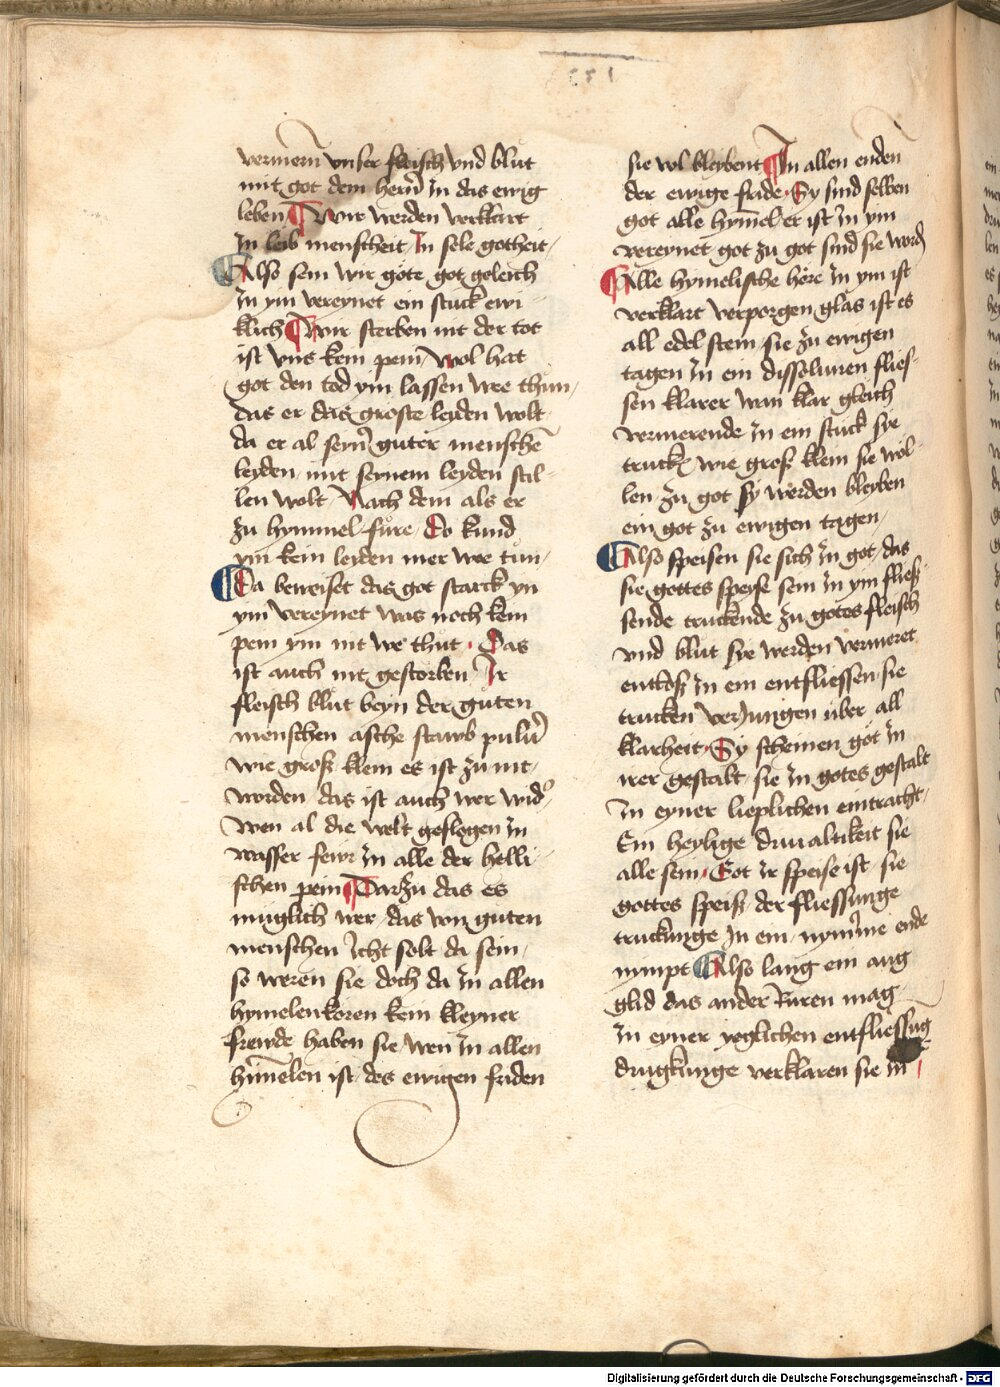 vermern vnser fleisch vnd blut
mit got dem hern in das ewig
leben Wir werden verklart
In leib menscheit In sele gotheit
Also sein wir gote got geleich
in ym vereynet ein stuck ewi
klich Wir sterben nit der tot
ist vns kein pein Wol hat
got den tod ym lassen wee thun
das er das groste leyden wolt
da er al seiner guter menschen
leyden mit seynem leyden stil
len wolt Nach dem als er
zu hymmel fure Do kund
ym kein leiden mer wee tun
Da beweiset das got starck yn
ym vereynet was noch kein
pein ym nit we thut Das
ist auch nit gestorben Ir
fleisch blut beyn der guten
menschen asche stawb puluer
wie groß klein es ist zu nit
worden das ist auch wer wider
wen al die welt geflogen in
wasser fewr in alle der helli
schen pein Darzu das es
muglich wer das von guten
menschen icht solt da sein
so weren sie doch da in allen
hymelen koren kein kleyner
frewde haben sie wen in allen
himelen ist des ewigen friden
sie wol bleybent In allen enden
der ewige fride Sy sind selben
got alle hymel er ist in ym
vereynet got zu got sind sie worden
Alle hymelische höre in ym ist
verklart verporgen glas ist es
all edel stein sie zu ewigen
tagen in ein dissoluiren flies
sen klarer wan klar gleich
vermerende in ein stuck sye
truck wie groß klein sie wol
len zu got sy werden bleyben
ein got zu ewigen tagen
Also speisen sie sich in got das
sie gottes speyse sein in ym fließ
sende truckende zu gotes fleisch
vnd blut sye werden vermeret
entloß in ein entfliessen sie
trucken verjungen über all
klarheit Sy scheinen got in
irer gestalt sie in gotes gestalt
in eyner lieplichen eintracht
Ein heylige driualtikeit sie
alle sein Got ir speise ist sie
gottes speiß der fliessunge
truckunge in ein nymme ende
nympt Also lang ein aug
glid das ander Ruren mag
in eyner yeglichen entfliessung
drugkunge verklaren sie in